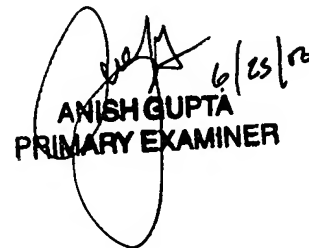 6/25/02
ANISH GUPTA
PRIMARY EXAMINER